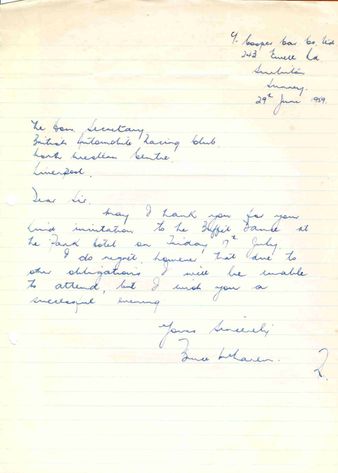 % Cooper Car Co. Ltd
243 Ewell Rd
Surbiton
Surrey.
29th June 1959.
The Hon. Secretary
British Automobile Racing Club.
North Western Centre.
Liverpool.
Dear Sir.
May I thank you for your
kind invitation to the Buffet Dance at
the Park Hotel on Friday, July.
I do regret, however, that due to
other obligations I will be unable
to attend, but I wish you a
successful evening
Yours Sincerely
Bruce McLaren.